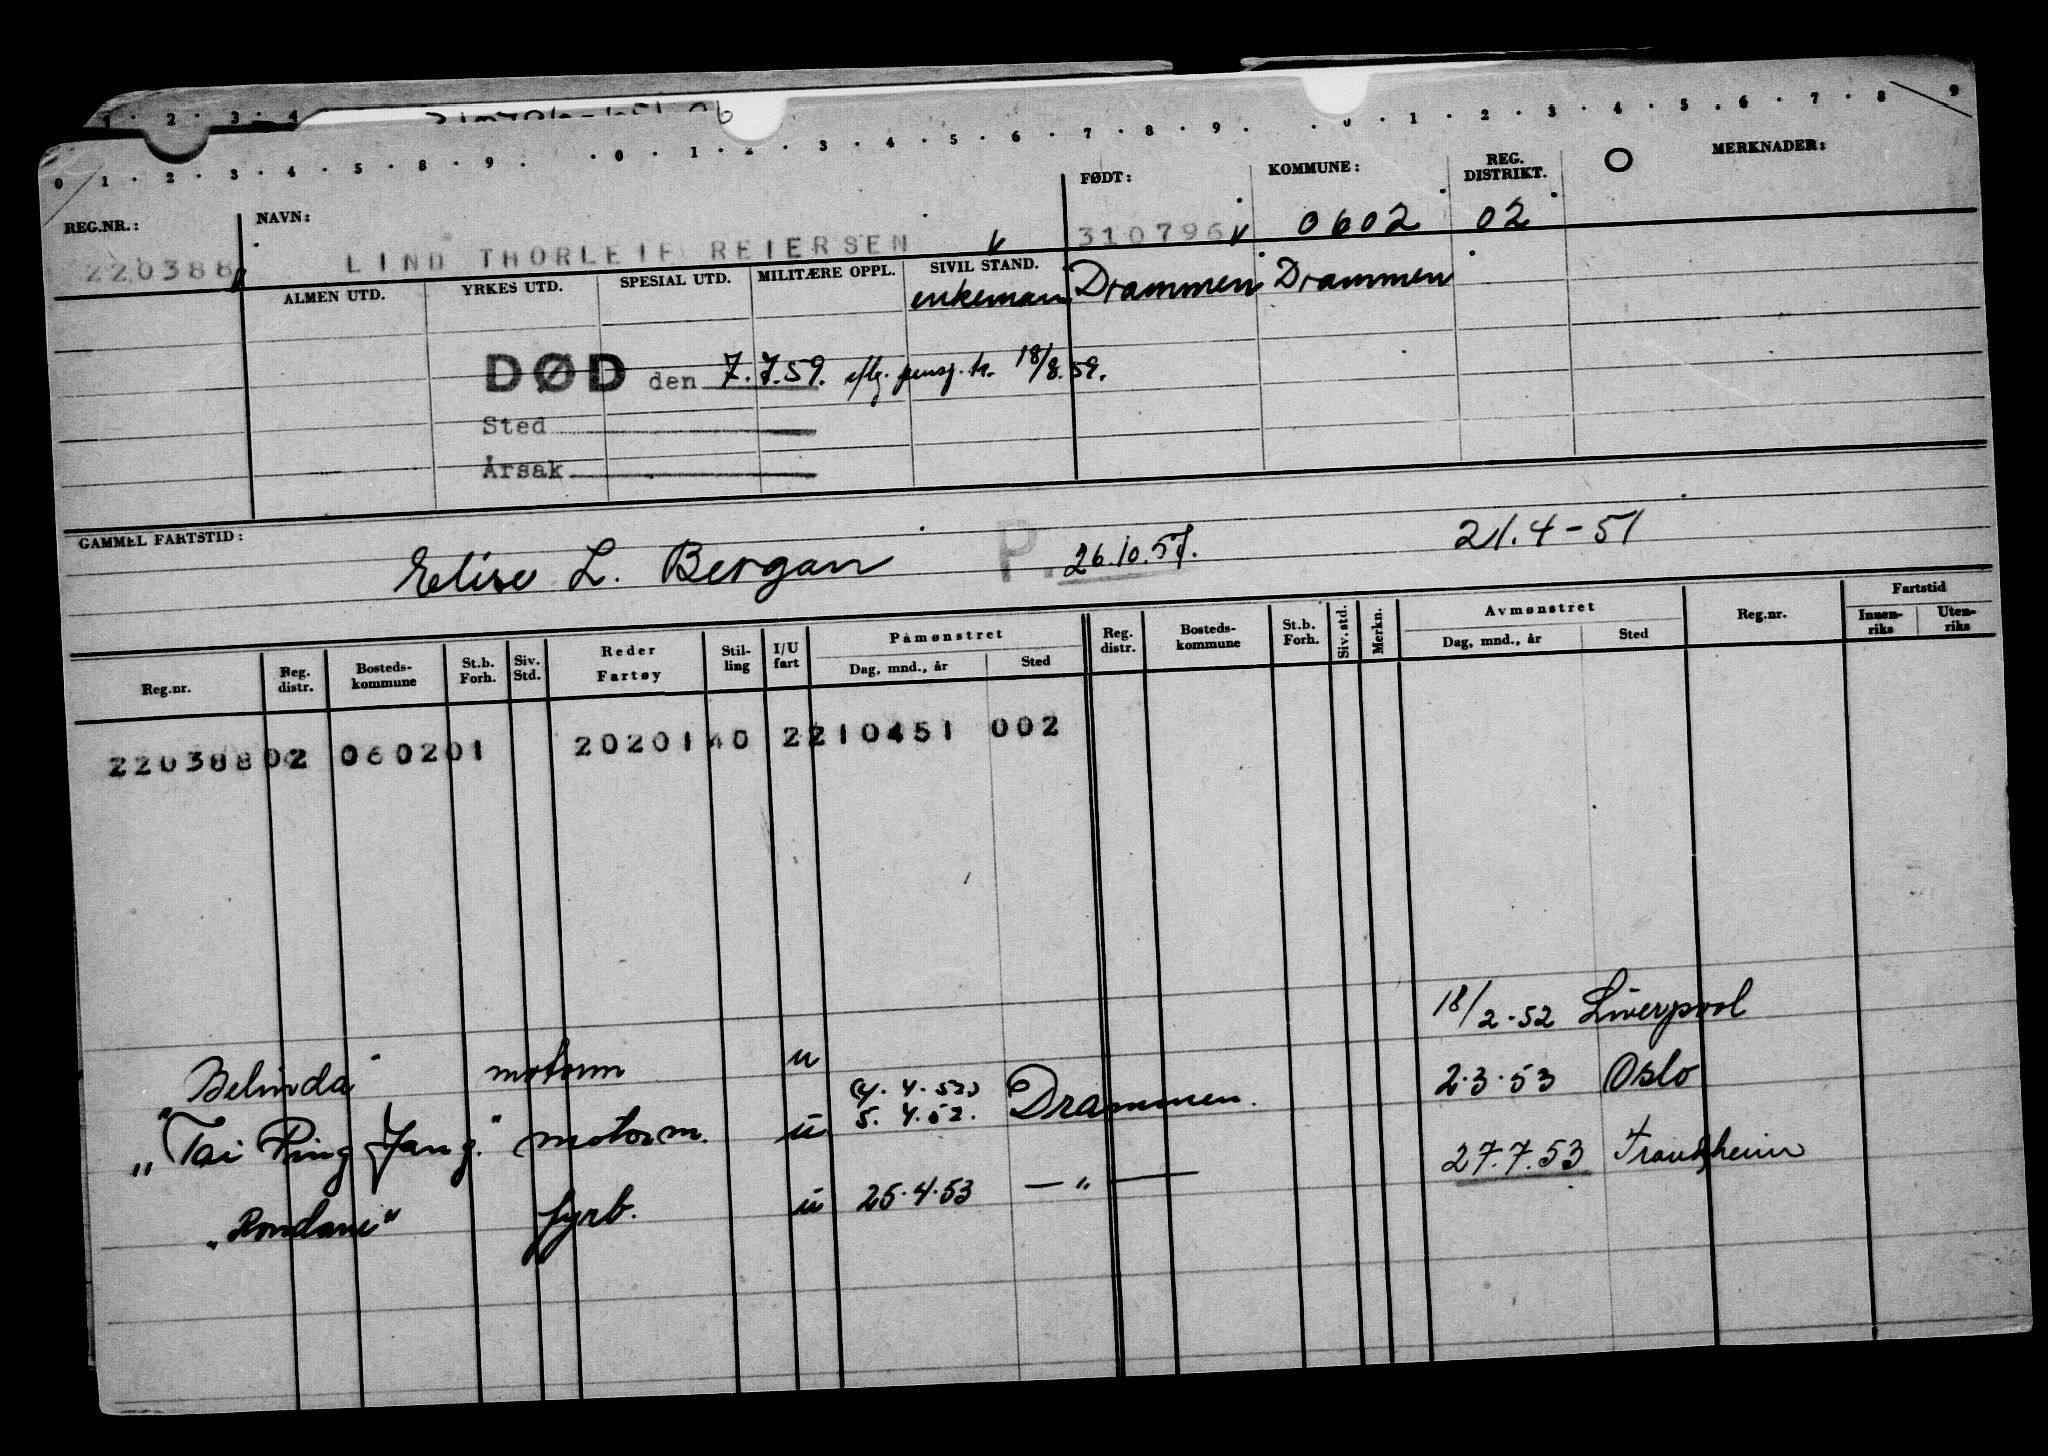 0 · 1 · 2 · 3 · 4 · 5 · 8 · 9 · · 0 · 1 · 2 · 3 · 4 · 5 · 6 · 7 · 8 · 9 · · 0 · 1 · 2 · 3 · 4 · 5 · 6 · 7 · 8 9
1 · 2 · 3 · 4
REG.NR.: NAVN: FØDT: KOMMUNE: REG. DISTRIKT. MERKNADER:
220388 LIND THORLEIF REIERSEN 310796 0602 02
ALMEN UTD. YRKES UTD. SPESIAL UTD. MILITÆRE OPPL. SIVIL STAND.
enkemann Drammen Drammen
DØD den 7.7.59. 18/8.59.
Sted
Årsak
GAMMEL FARTSTID:
Elise L. Bergan P. 26.10.57. 21.4-51
Reg.nr. Reg. distr. Bosteds-kommune St.b. Forh. Siv. Std. Reder Fartøy Stil-ling I/U fart Påmønstret Dag, mnd., år Sted Reg. distr. Bosteds-kommune St.b. Forh. Siv. std. Merkn. Avmønstret Dag, mnd., år Sted Reg.nr. Fartstid Innen-riks Uten-riks
22038802 060201 2020140 2210451 002
"Belinda" motorm u 18/2-52 Liverpool
„Tai Ping Yang." motorm. u (4.4.52) 5.4.52. Drammen. 2.3.53 Oslo
„Rondane" fyrb. u 25.4.53 — „ — 27.7.53 Trondheim